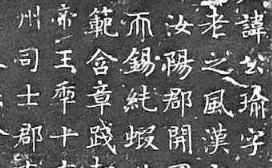 諱公瑜字
老之風漢
而錫純蝦
汝陽郡開
範含章踐
帝王季十
州司士郡